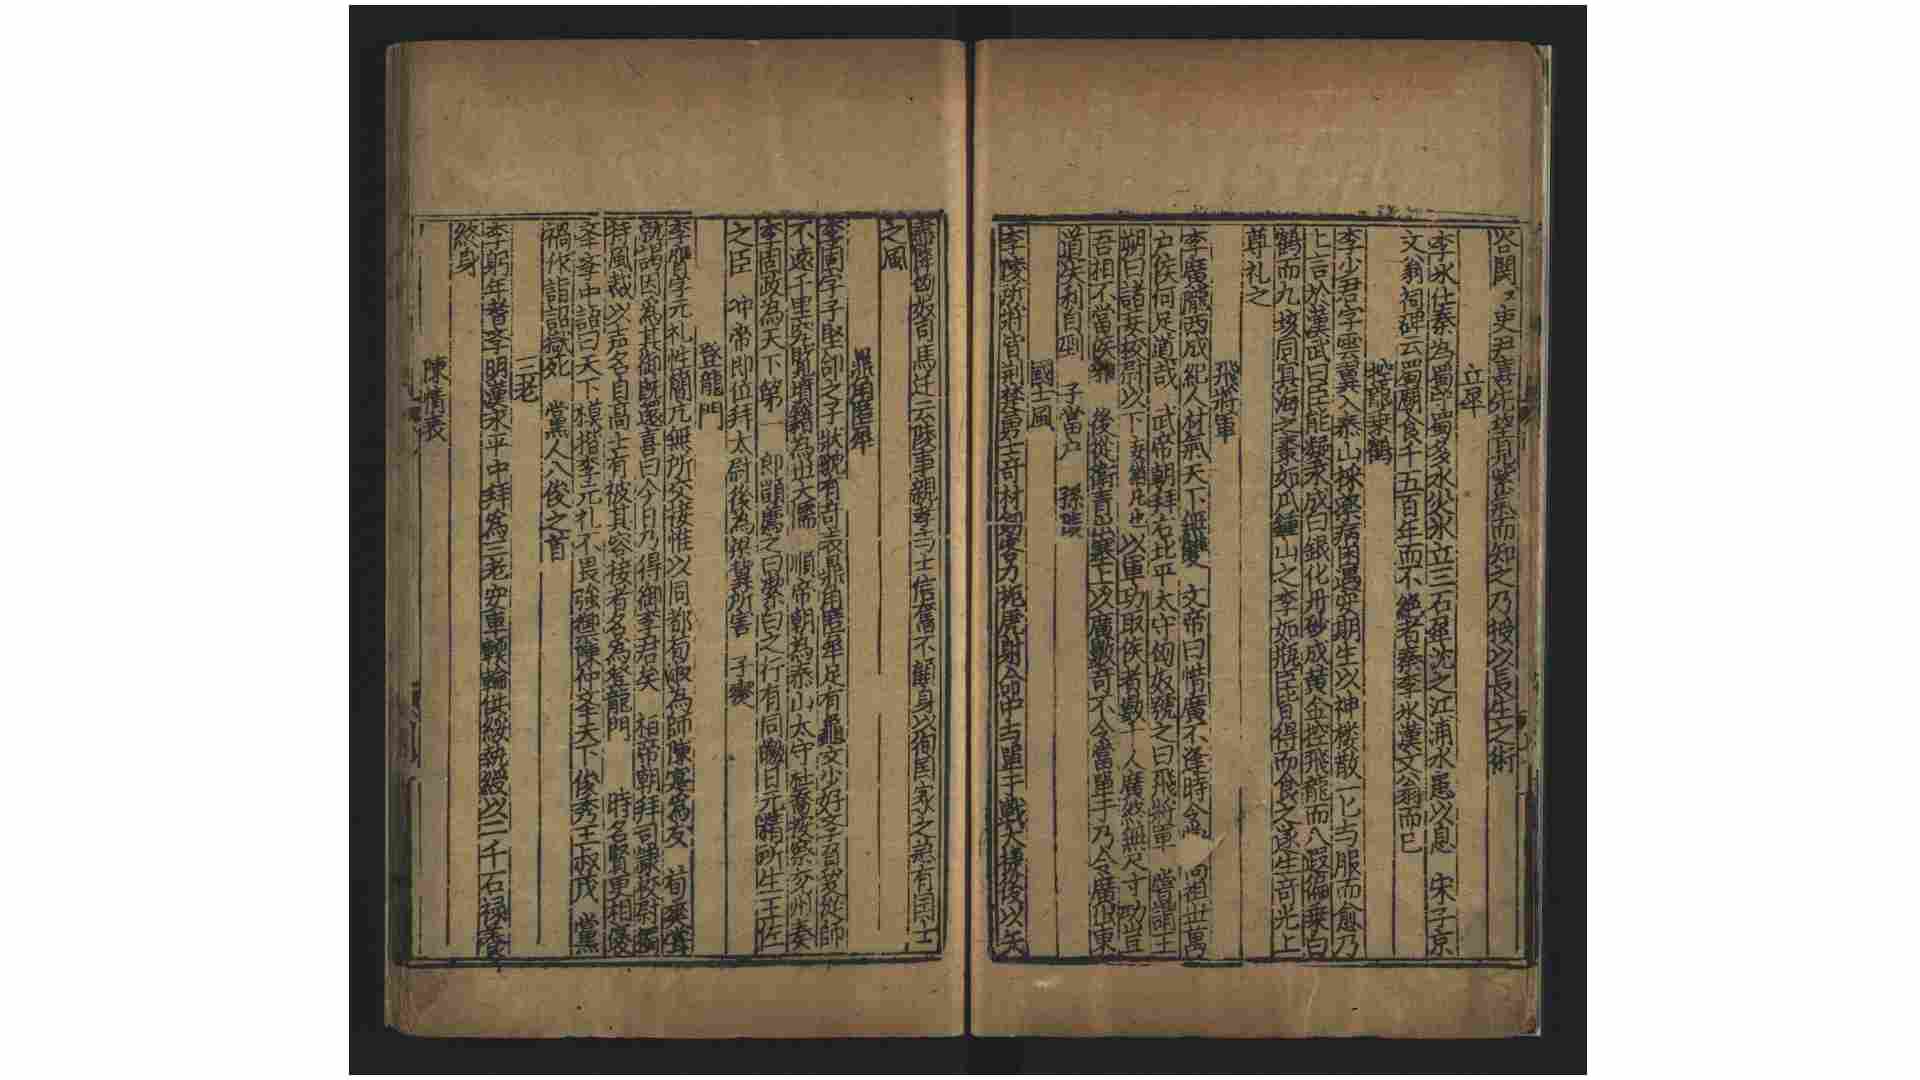 谷関〻吏尹喜先望見紫氣而知之乃授以長生之術
立犀
李氷仕秦為蜀郡蜀多水災氷立三石犀沈之江浦水患以息 宋子京
文翁祠碑云蜀廟食千五百年而不絶者秦李氷漢文翁而已
控龍乗鶴
李少君字雲翼入泰山採藥病困遇安期生以神楼散一匕与服而愈乃
上言於漢武曰臣能凝汞成白銀化丹砂成黄金控飛龍而八遐徧乗白
鶴而九垓周冥海之棗如瓜鍾山之李如瓶臣皆得而食之遂生竒光上
尊礼之
飛將軍
李廣隴西成紀人材氣天下無雙 文帝曰惜廣不逢時令 高祖世萬
户侯何足道哉 武帝朝拜右北平太守匈奴號之曰飛將軍 嘗謂王
朔曰諸妄校尉以下 以軍功取侯者數十人廣然無尺寸功豈
吾相不當侯耶 後從衛青出塞上以廣數竒不令當單于乃令廣出東
道失利自刎 子當户 孫陵
國士風
李陵所將皆荆楚勇士竒材劒客力扼虎射命中与單于戰大捷後以矢
盡降匈奴司馬迁云陵事親孝与士信奮不顧身以徇国家之急有国士
之風
鼎角匿犀
李固字子堅郃之子狀貌有竒表鼎角匿犀足有龜文少好孝百歩從師
不遠千里究覧墳籍為世大儒 順帝朝為泰山太守杜喬按察兖州奏
李固政為天下第一 郎顗薦之曰潔白之行有同皦日元精所生王佐
之臣 冲帝即位拜太尉後為梁冀所害 子燮
登龍門
李膺字元礼性簡亢無所交接惟以同郡荀淑為師陳寔為友 荀爽嘗
就謁因為其御既還喜曰今日乃得御李君矣 桓帝朝拜司隷校尉獨
持風裁以声名自高士有被其容接者名為登龍門 時名賢更相優
斈斈中語曰天下模楷李元礼不畏強禦陳仲斈天下俊秀王叔茂 黨
禍作詣詔獄死 黨人八俊之首
三老
李躬年耆斈明漢永平中拜為三老安車輭輪供綏執綬以二千石禄養
終身
陳情表